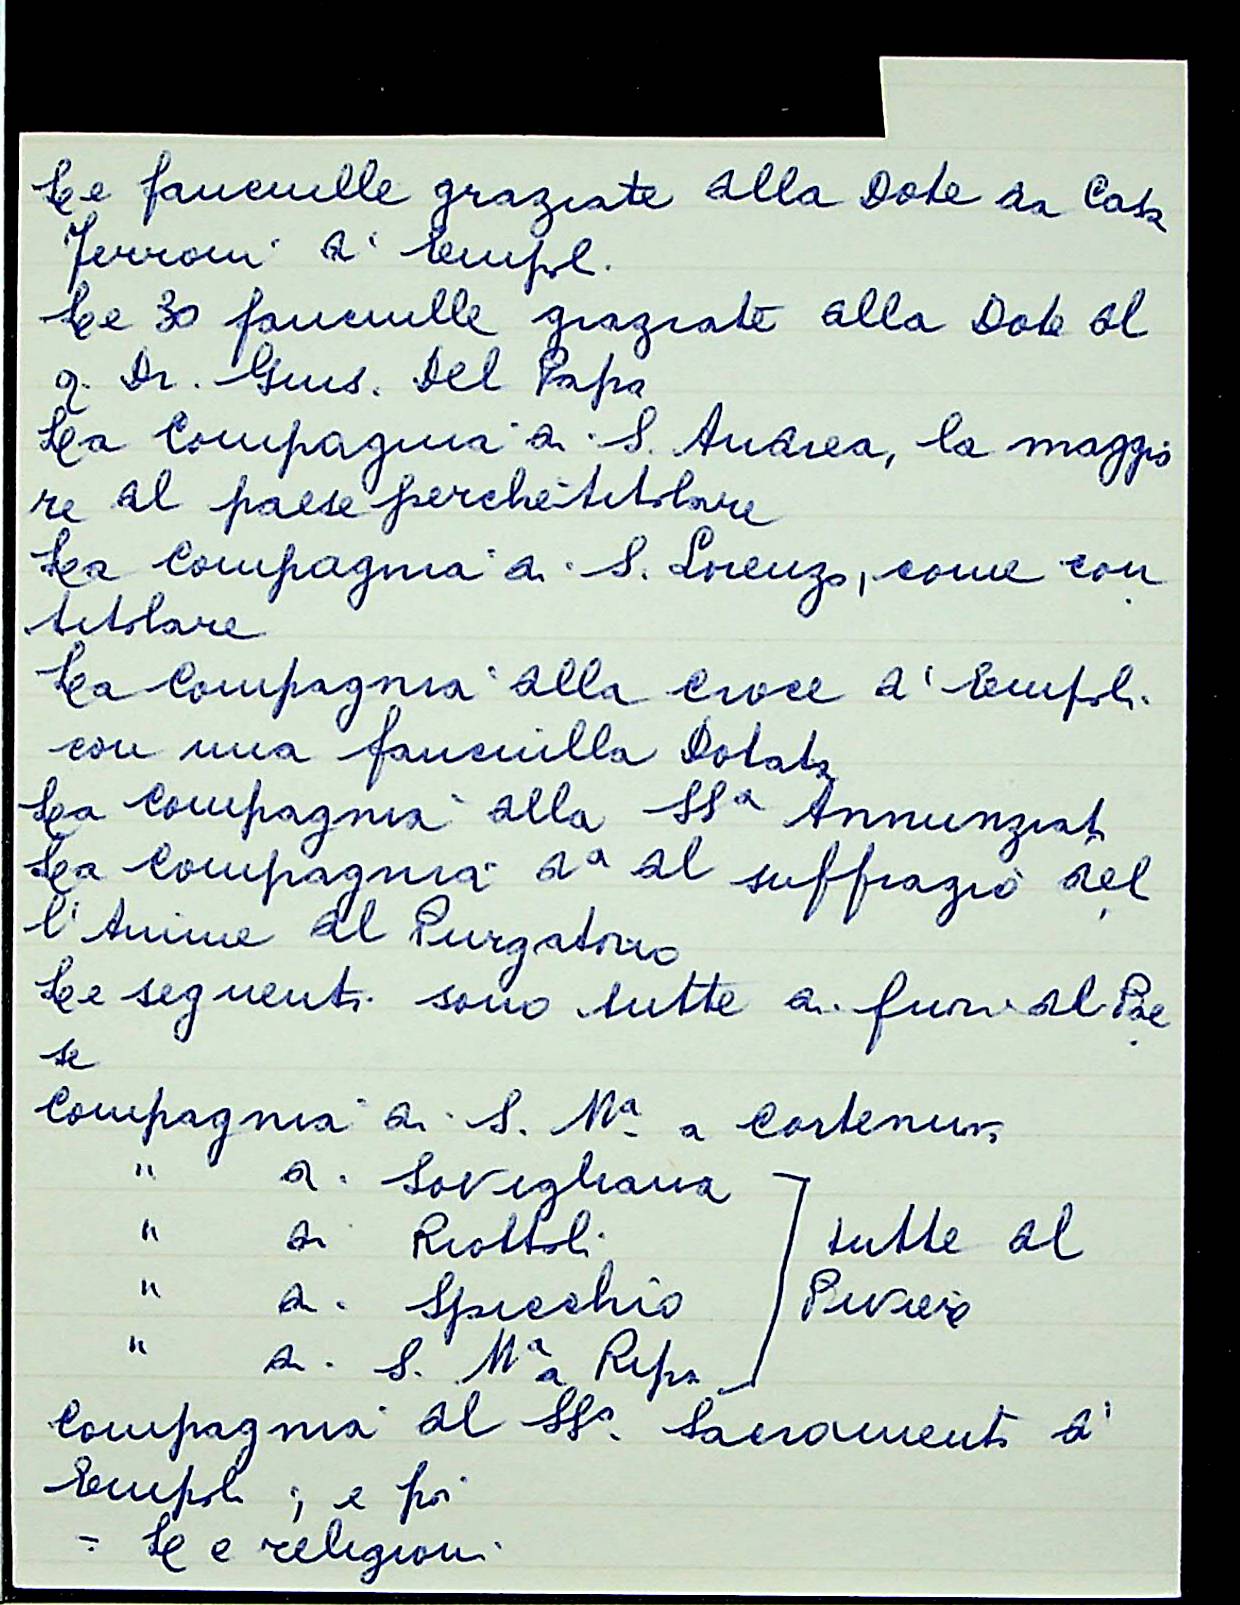 Le fanciulle graziate dalla Dote da Casa
Ferroni d'Empoli.
Le 30 fanciulle graziate dalla Dote del
q. Dr. Gius. Del Papa
La Compagnia di S. Andrea, la maggio
re del paese perchè titolare
La Compagnia di S. Lorenzo, come con
titolare
La Compagnia della Croce d'Empoli
con una fanciulla Dotata
La Compagnia della SSa Annunziata
La Compagnia da del suffragio del
l'Anime del Purgatorio
Le seguenti sono tutte di fuori del Pae
se
Compagnia di S. Ma a Cortenuova
" di Sovigliana
" di Riottoli
" di Spicchio
" di S. Ma a Ripa
tutte del
Piviere
Compagnia del SSo. Sacramento d'
Empoli; e poi
= Le religioni